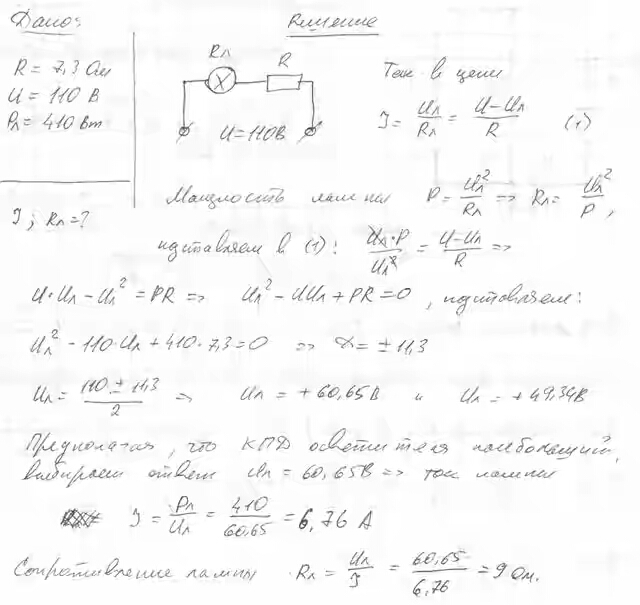 Дано: Решение
R = 7,3 Ом
U = 110 В
Pл = 410 Вт
I; Rл = ?
Rл R
U = 110В
Ток в цепи
I = Uл/Rл = U-Uл/R (1)
Мощность лампы P = Uл²/Rл => Rл = Uл²/P,
подставляем в (1): Uл·P/Uл² = U-Uл/R =>
U·Uл - Uл² = PR => Uл² - UUл + PR = 0, подставляем:
Uл² - 110·Uл + 410·7,3 = 0 => √ = ± 11,3
Uл = 110 ± 11,3/2 => Uл = +60,65В и Uл = +49,34В
Предполагая, что КПД осветителя наибольший,
выбираем ответ Uл = 60,65В => ток лампы
I = Pл/Uл = 410/60,65 = 6,76 А
Сопротивление лампы Rл = Uл/I = 60,65/6,76 = 9 Ом.